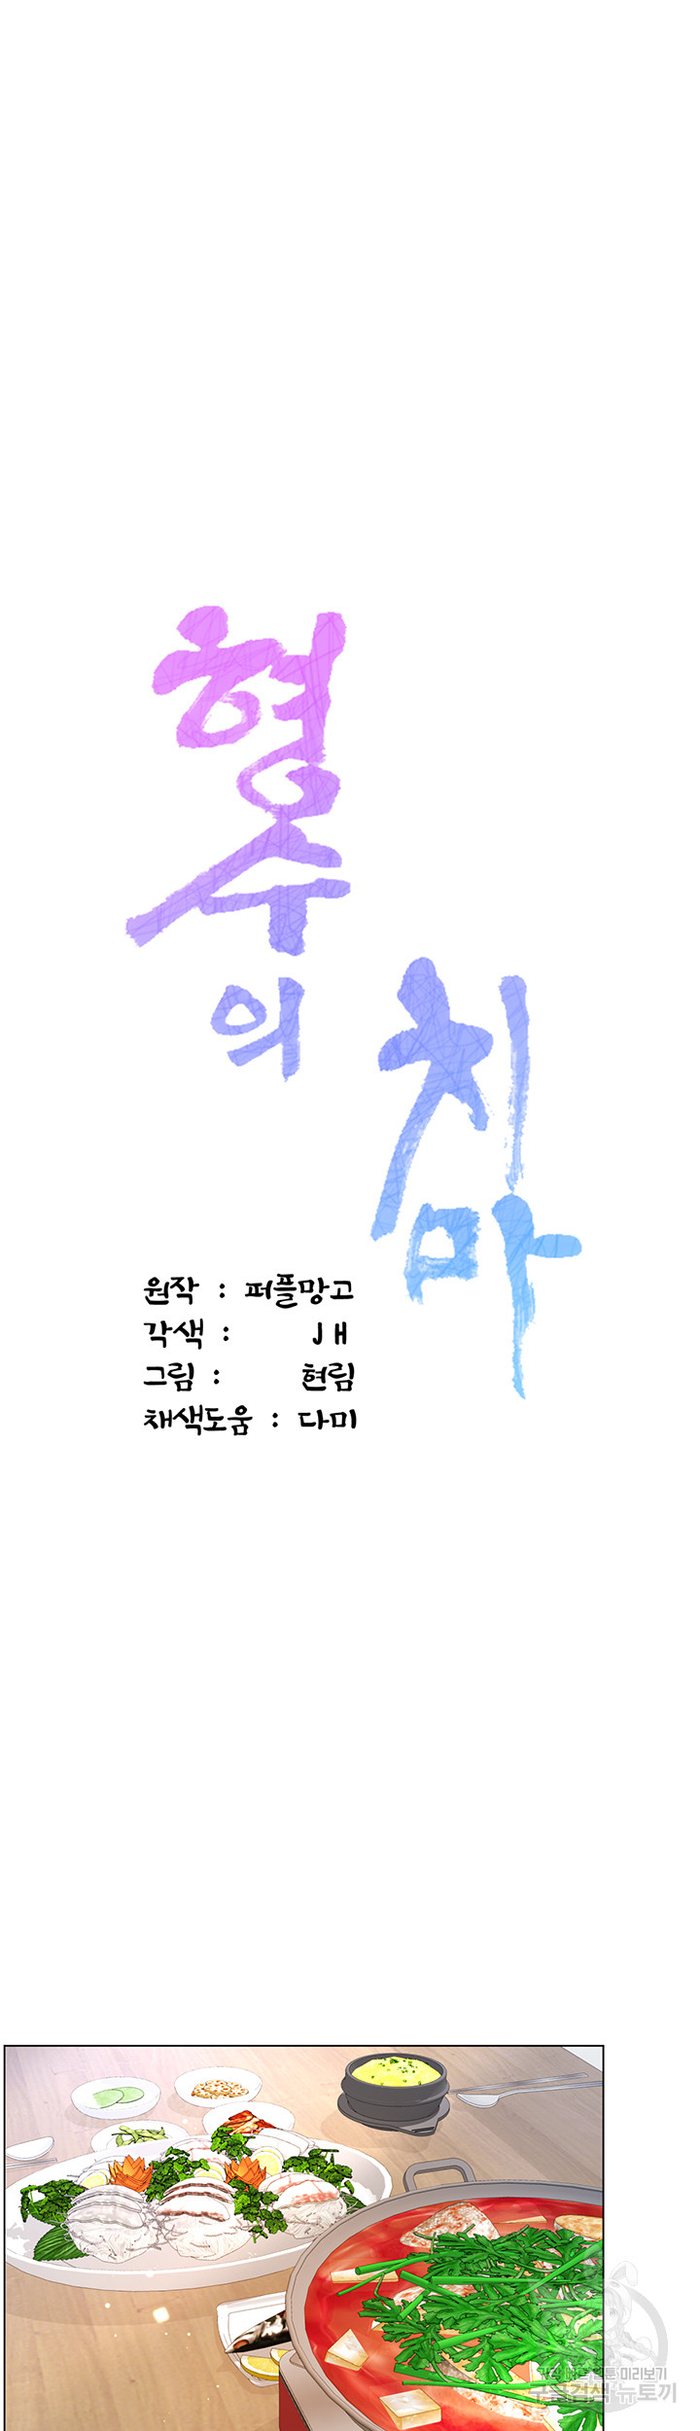 형수의
치마
원작 : 퍼플망고
각색 : JH
그림 : 현림
채색도움 : 다미
미리보기
뉴토끼